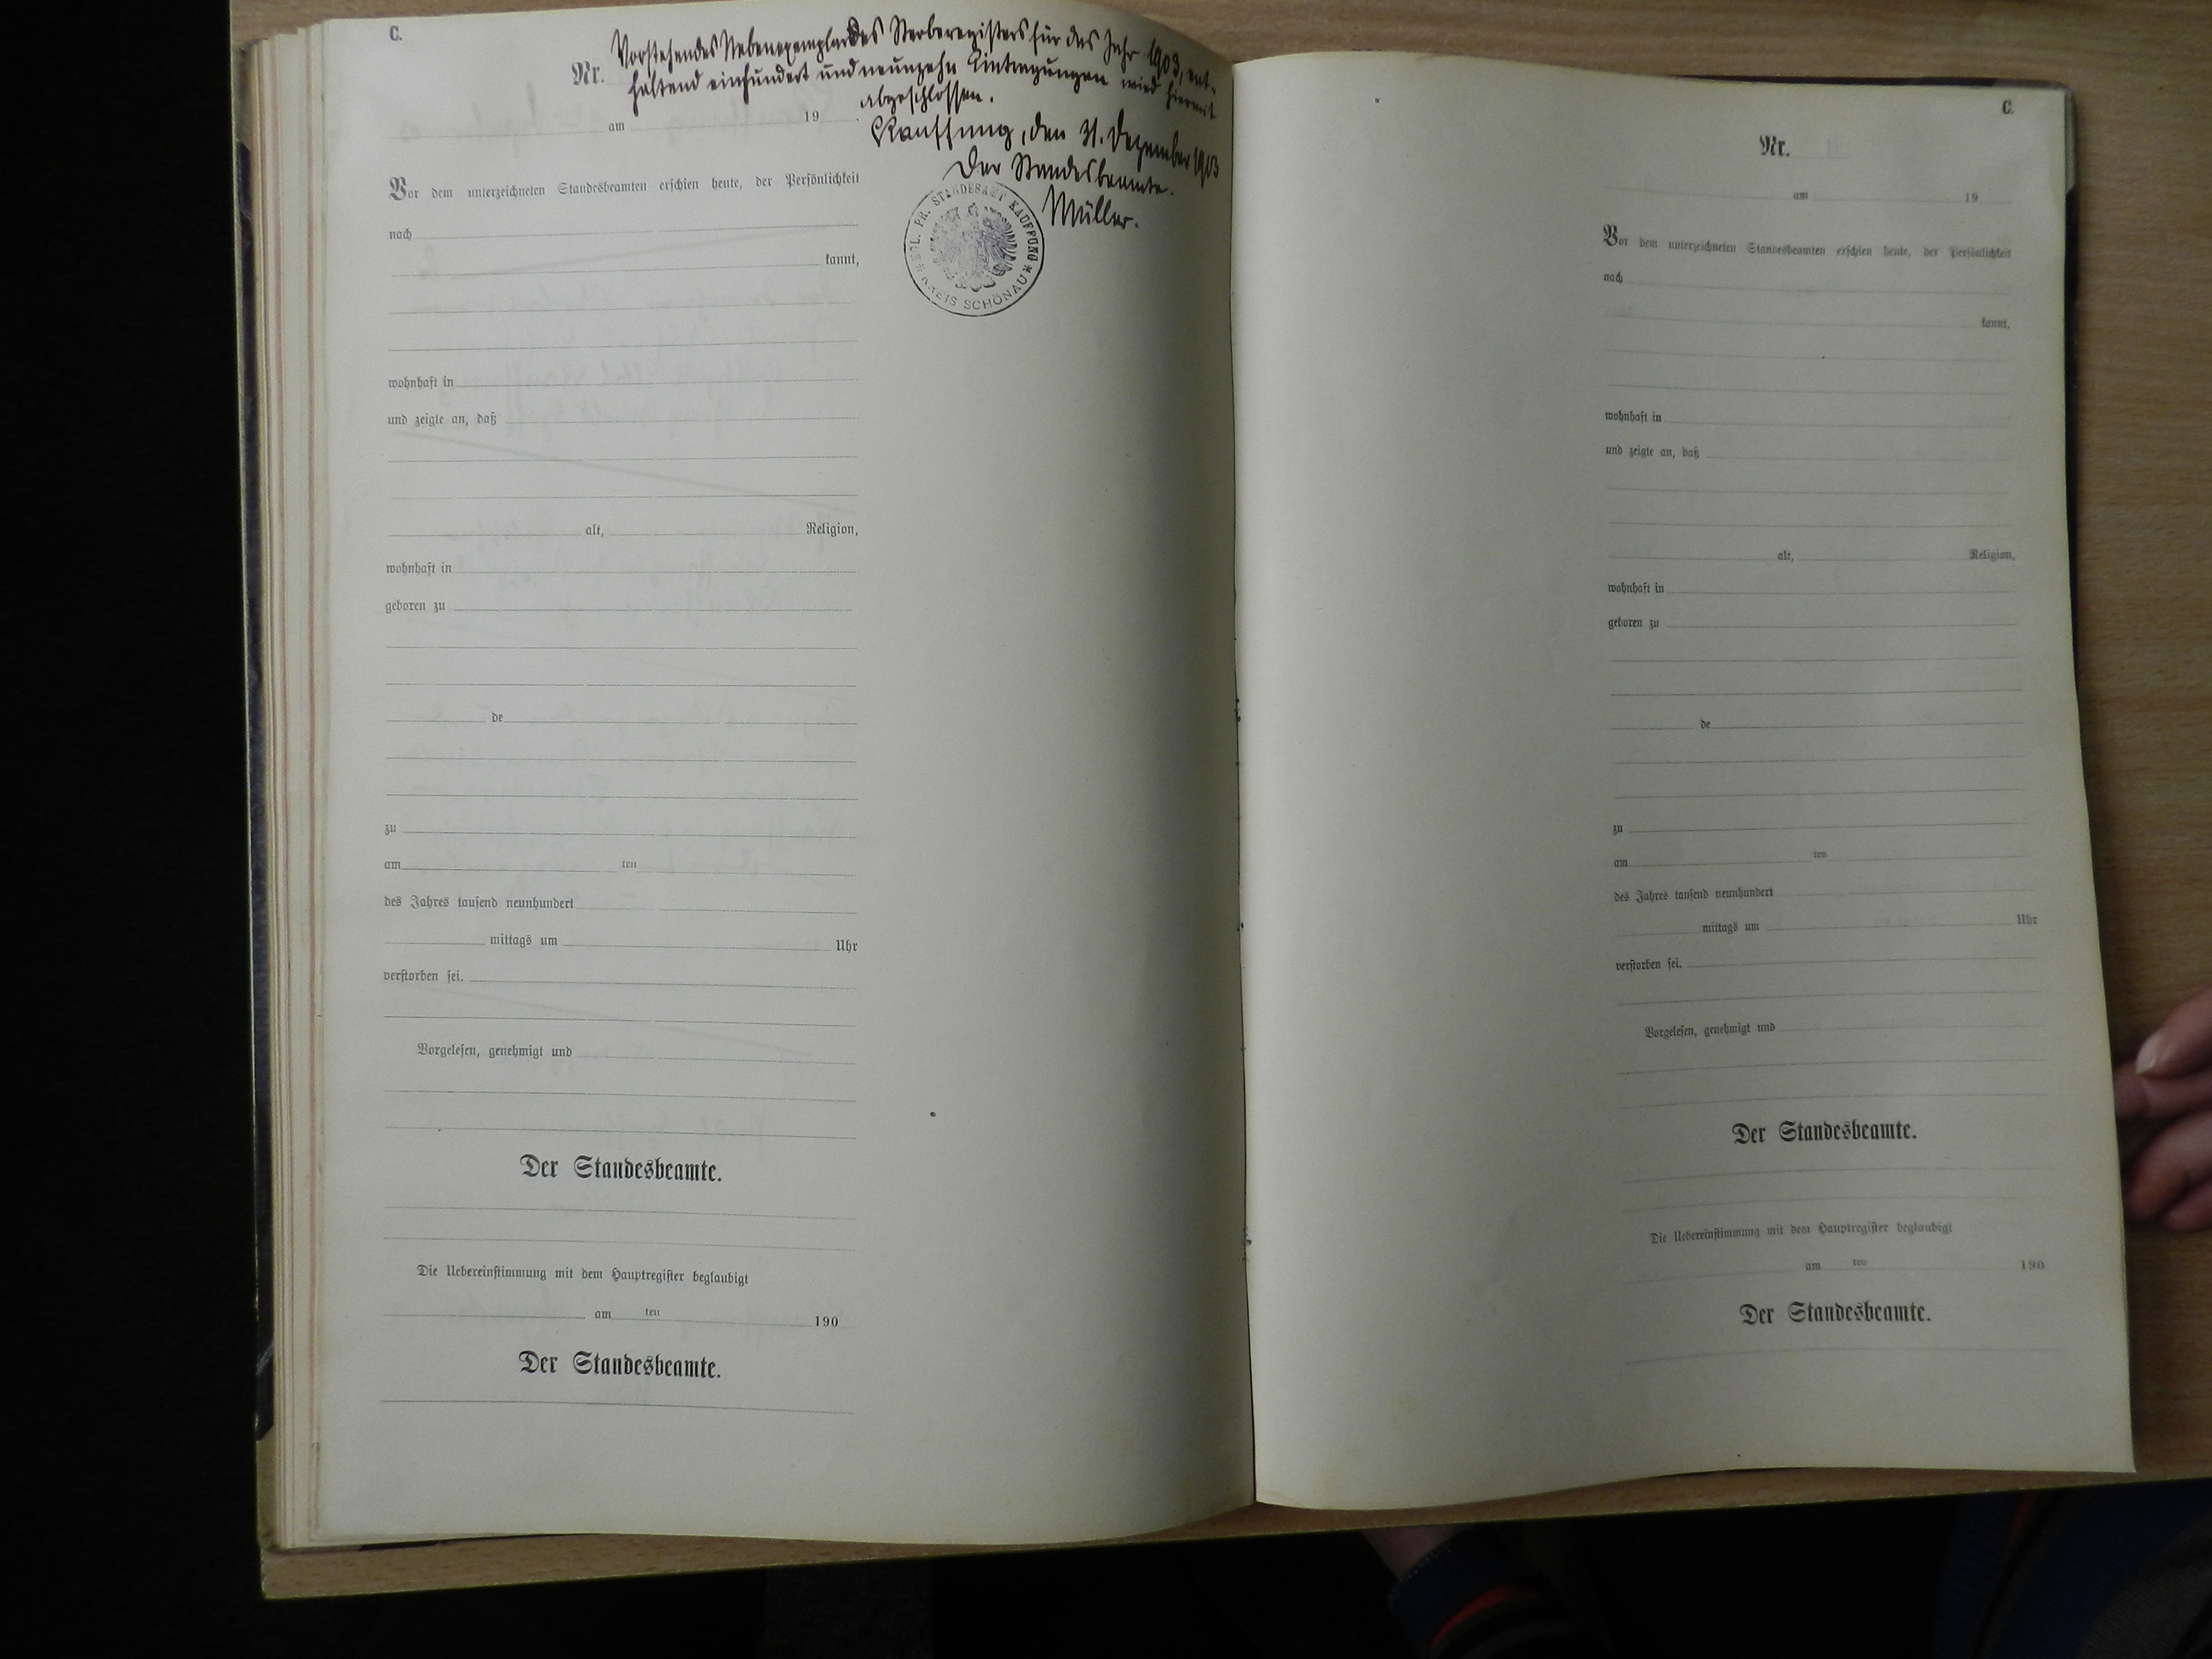 C.
Nr.
Vorstehendes Nebenexemplar des Sterberegisters für das Jahr 1903, ent-
haltend einhundert und neunzehn Eintragungen wird hiermit
abgeschlossen.
Kauffung, den 31. Dezember 1903
Der Standesbeamte.
Müller.
KGL. PR. STANDESAMT KAUFFUNG * KREIS SCHÖNAU *
am 19
Vor dem unterzeichneten Standesbeamten erschien heute, der Persönlichkeit
nach
kannt,
wohnhaft in
und zeigte an, daß
alt, Religion,
wohnhaft in
geboren zu
de
zu
am ten
des Jahres tausend neunhundert
mittags um Uhr
verstorben sei.
Vorgelesen, genehmigt und
Der Standesbeamte.
Die Uebereinstimmung mit dem Hauptregister beglaubigt
am ten 190
Der Standesbeamte.
C.
Nr.
am 19
Vor dem unterzeichneten Standesbeamten erschien heute, der Persönlichkeit
nach
kannt,
wohnhaft in
und zeigte an, daß
alt, Religion,
wohnhaft in
geboren zu
de
zu
am ten
des Jahres tausend neunhundert
mittags um Uhr
verstorben sei.
Vorgelesen, genehmigt und
Der Standesbeamte.
Die Uebereinstimmung mit dem Hauptregister beglaubigt
am ten 190
Der Standesbeamte.